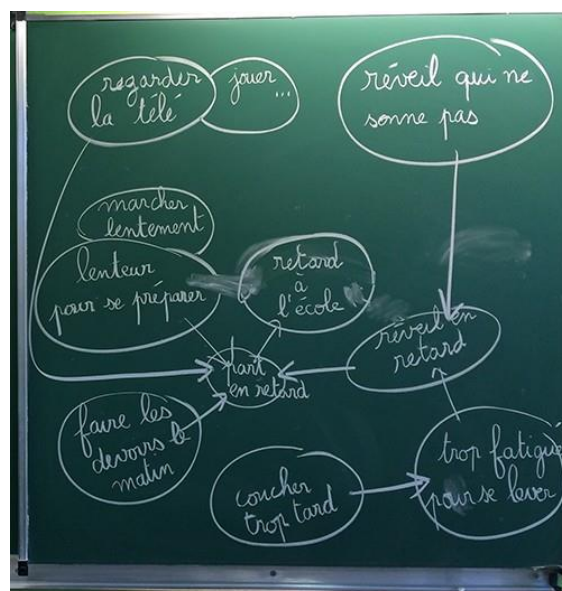 regarder
la télé
jouer
...
réveil qui ne
sonne pas
marcher
lentement
lenteur
pour se préparer
retard
à
l'école
réveil en
retard
part
en retard
faire les
devoirs le
matin
coucher
trop tard
trop fatigué
pour se lever